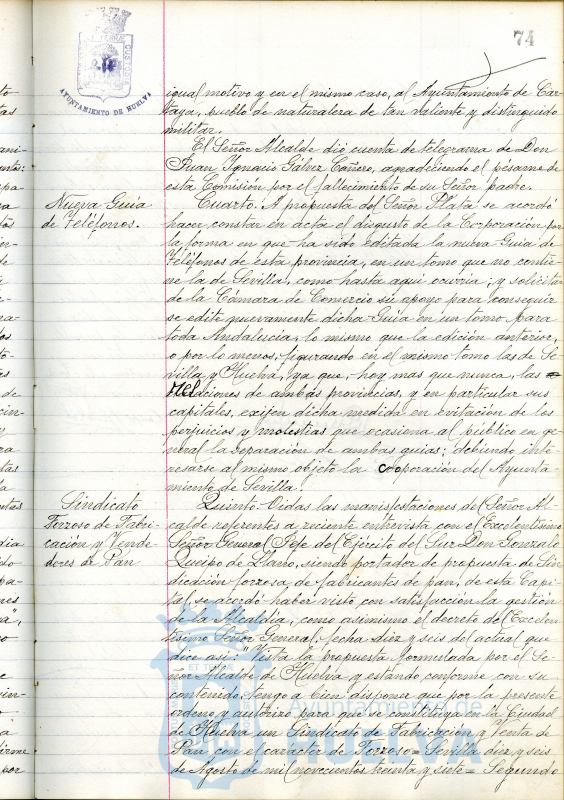 74
AYUNTAMIENTO DE HUELVA
igual motivo y en el mismo caso, al Ayuntamiento de Car-
taya, pueblo de naturaleza de tan valiente y distinguido
militar.
El Señor Alcalde dió cuenta de telegrama de Don
Juan Ignacio Gálvez Cañero, agradeciendo el pésame de
esta Comisión por el fallecimiento de su Señor padre.
Nueva Guia
de Teléfonos.
Cuarto. A propuesta del Señor Plata se acordó
hacer constar en acta el disgusto de la Corporación por
la forma en que ha sido editada la nueva Guia de
Teléfonos de esta provincia, en un tomo que no contie-
ne la de Sevilla, como hasta aquí ocurría; y solicitar
de la Cámara de Comercio su apoyo para conseguir
se edite nuevamente dicha Guia en un tomo para
toda Andalucia, lo mismo que la edición anterior,
o por lo menos, figurando en el mismo tomo las de Se-
villa y Huelva, ya que, hoy mas que nunca, las
relaciones de ambas provincias, y en particular sus
capitales, exijen dicha medida en evitación de los
perjuicios y molestias que ocasiona al público en ge-
neral la separación de ambas guias; debiendo inte-
resarse al mismo objeto la cooperación del Ayunta-
miento de Sevilla.
Sindicato
Forzoso de Fabri-
cación y Vende-
dores de Pan
Quinto. Oidas las manifestaciones del Señor Al-
calde referentes a reciente entrevista con el Excelentísimo
Señor General Jefe del Ejército del Sur Don Gonzalo
Queipo de Llano, siendo portador de propuesta de Sin-
dicación forzosa de fabricantes de pan, de esta Capi-
tal, se acordó haber visto con satisfacción la gestión
de la Alcaldia, como asimismo el decreto del Excelen-
tísimo Señor General, fecha diez y seis del actual que
dice asi: "Vista la propuesta formulada por el Se-
ñor Alcalde de Huelva y estando conforme con su
contenido, tengo a bien disponer que por la presente
ordeno y autorizo para que se constituya en la Ciudad
de Huelva un Sindicato de Fabricación y Venta de
Pan con el caracter de Forzoso = Sevilla diez y seis
de Agosto de mil novecientos treinta y siete = Segundo
Ayuntamiento de
HUELVA